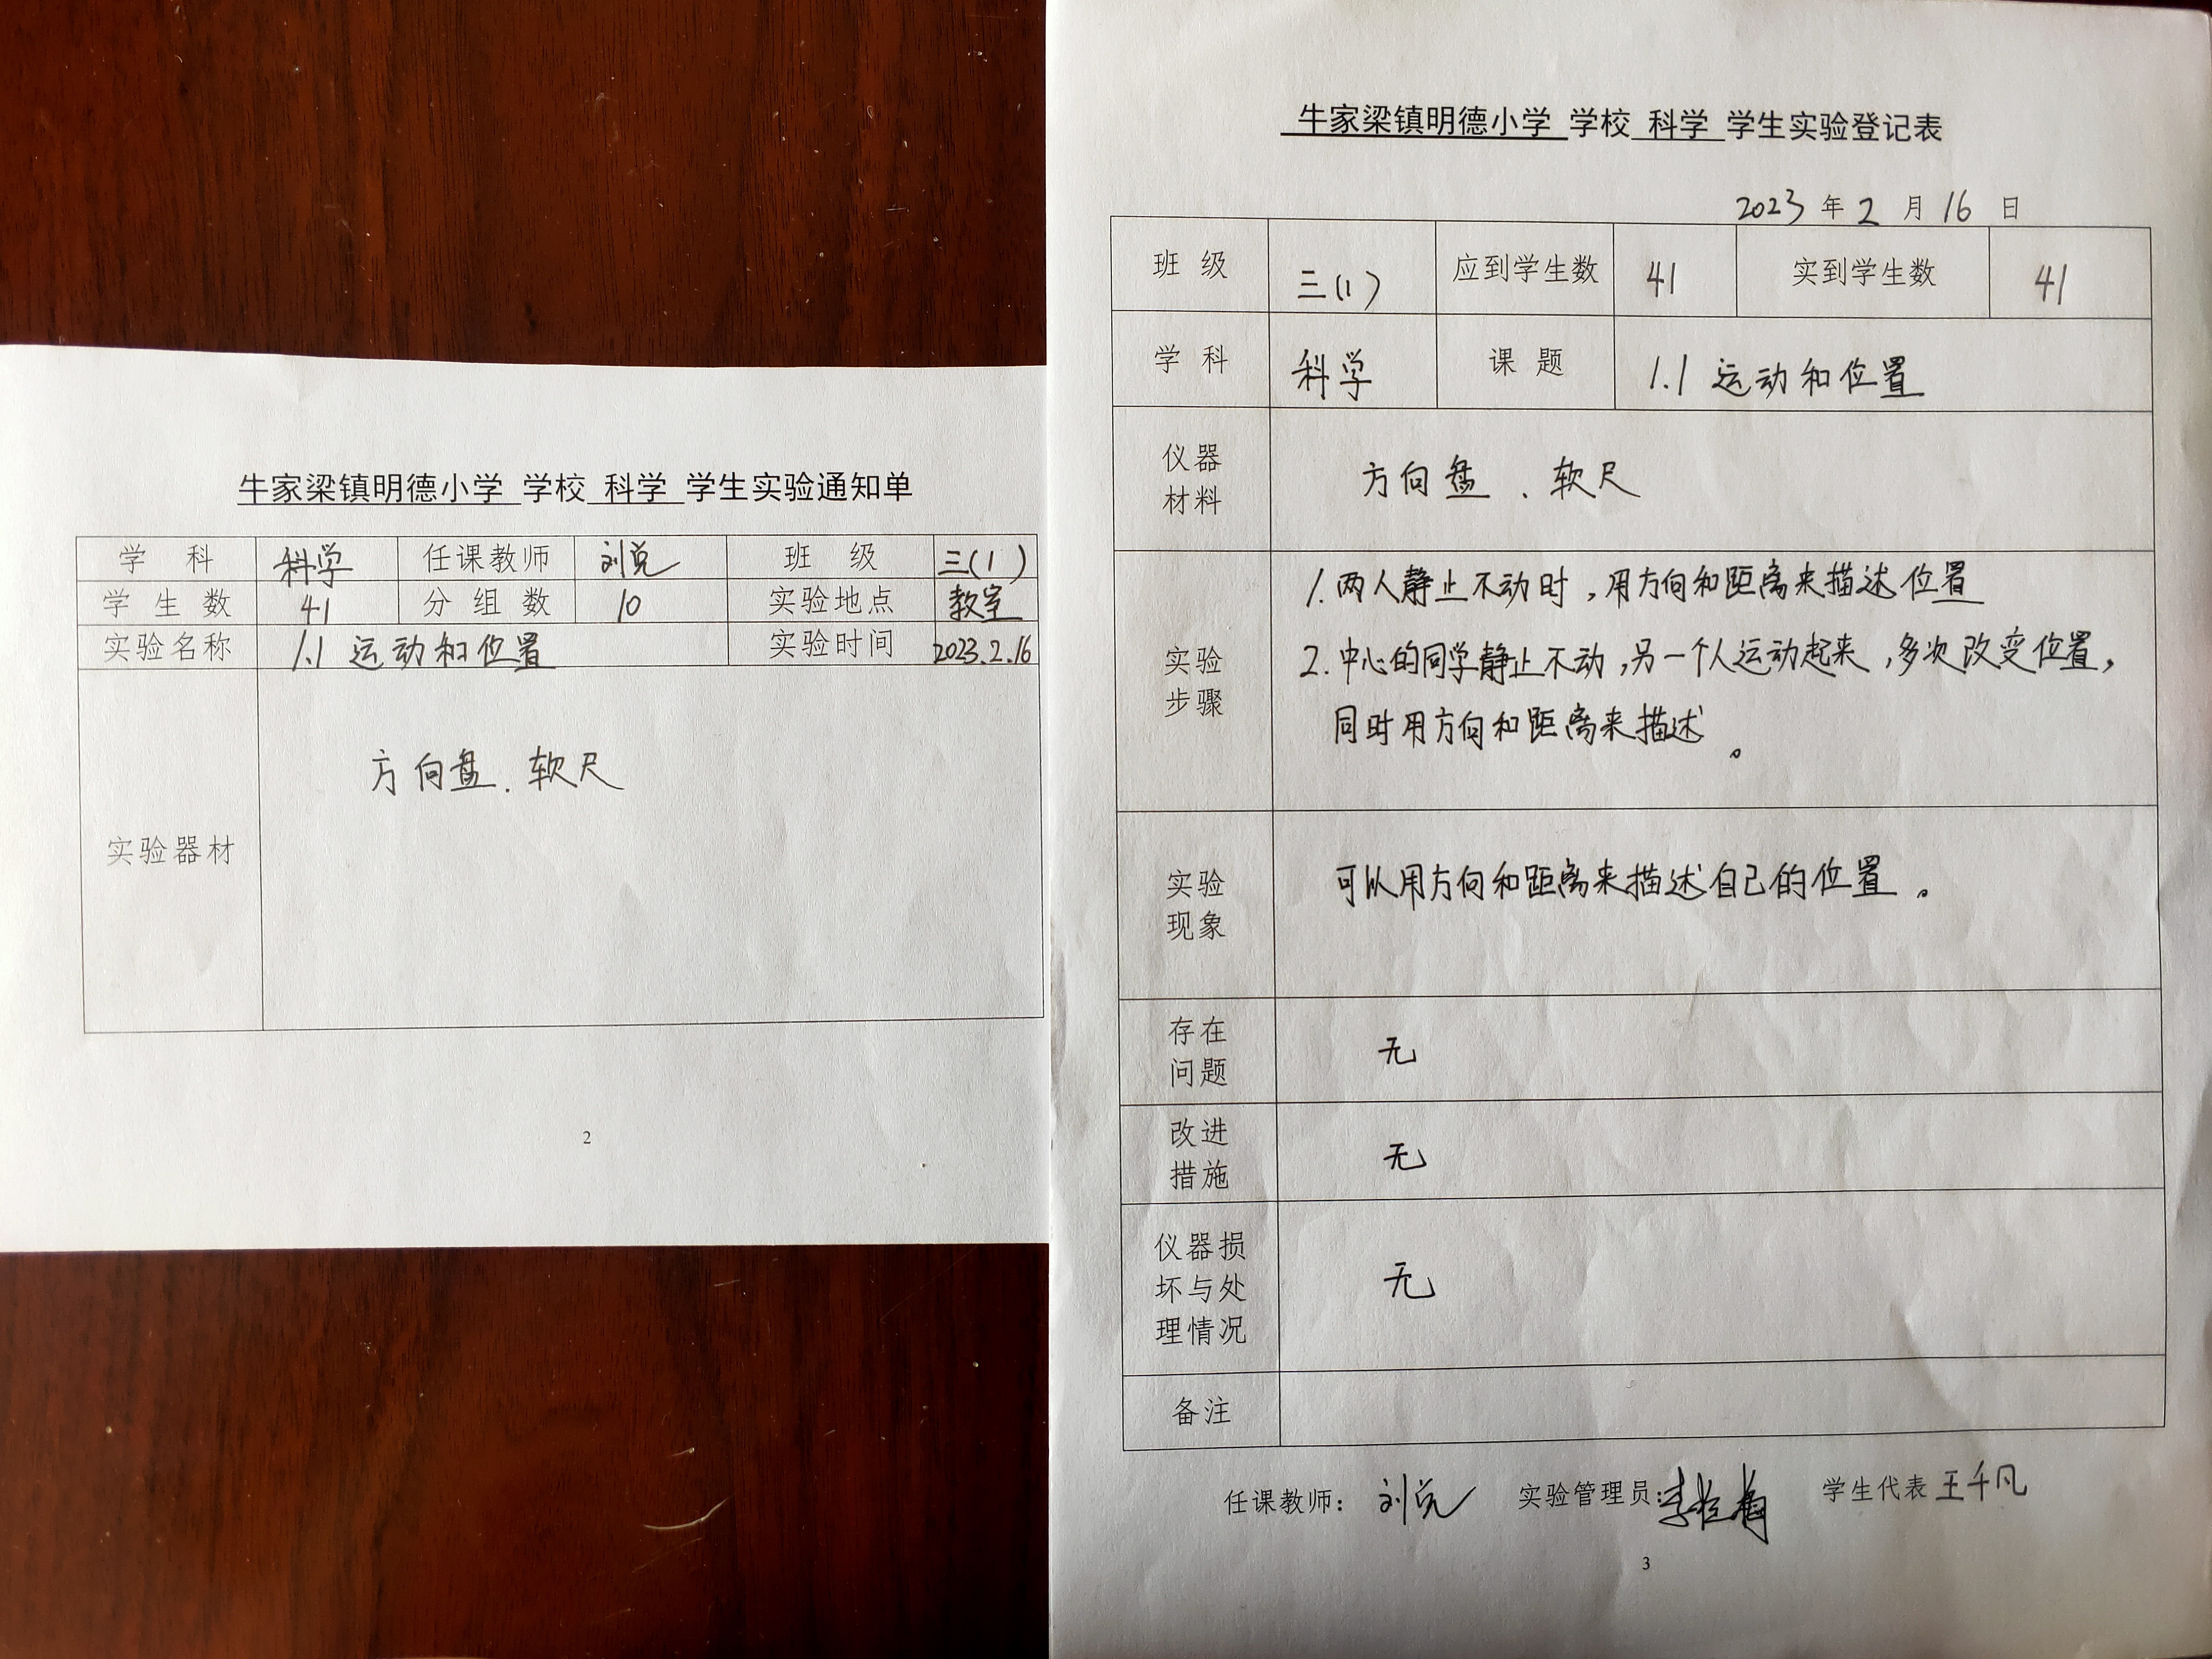 牛家梁镇明德小学 学校 科学 学生实验通知单
学 科 科学 任课教师 刘党 班 级 三(1)
学 生 数 41 分 组 数 10 实验地点 教室
实验名称 1.1 运动和位置 实验时间 2023.2.16
方向盘、软尺
实验器材
2
牛家梁镇明德小学 学校 科学 学生实验登记表
2023 年 2 月 16 日
班 级 三(1) 应到学生数 41 实到学生数 41
学 科 科学 课 题 1.1 运动和位置
仪器
材料
方向盘、软尺
实验
步骤
1. 两人静止不动时,用方向和距离来描述位置
2. 中心的同学静止不动,另一个人运动起来,多次改变位置,
同时用方向和距离来描述。
实验
现象
可以用方向和距离来描述自己的位置。
存在
问题
无
改进
措施
无
仪器损
坏与处
理情况
无
备注
任课教师: 实验管理员: 学生代表 王千凡
3